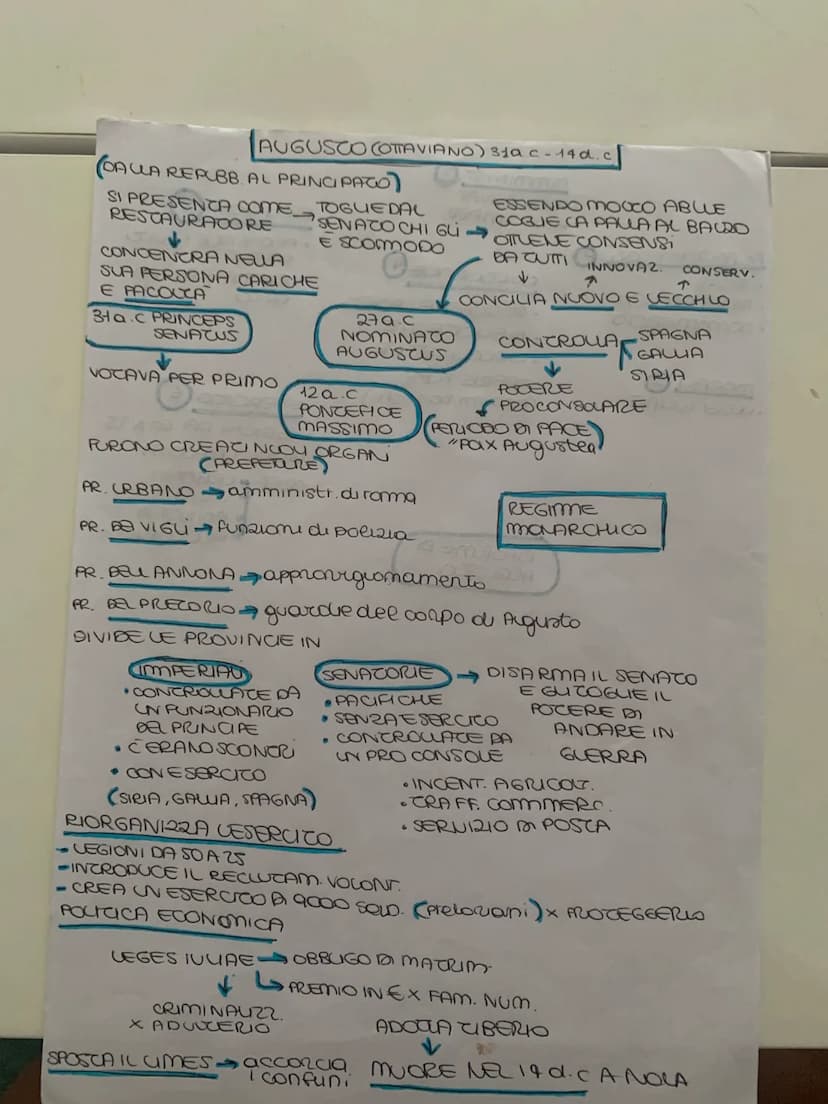 AUGUSTO (OTTAVIANO) 31 a.c - 14 d.c
(DALLA REPUBB. AL PRINCIPATO)
SI PRESENTA COME RESTAURATORE → TOGLIE DAL SENATO CHI GLI È SCOMODO → ESSENDO MOLTO ABILE
COGLIE LA PALLA AL BALZO
OTTIENE CONSENSI
DA TUTTI
INNOVAZ. CONSERV.
CONCILIA NUOVO E VECCHIO
CONCENTRA NELLA
SUA PERSONA CARICHE
E FACOLTÀ
31 a.c PRINCEPS
SENATUS
VOTAVA PER PRIMO
27 a.c
NOMINATO
AUGUSTUS
CONTROLLA
SPAGNA
GALLIA
SIRIA
POTERE
PROCONSOLARE
(PERIODO DI PACE)
"Pax Augustea
12 a.c
PONTEFICE
MASSIMO
FURONO CREATI NUOVI ORGANI
(PREFETURE)
PR. URBANO → amministr. di roma
PR. DEI VIGLI → funzioni di polizia
REGIME
MONARCHICO
PR. DELL ANNONA → approvigionamento
PR. DEL PRETORIO → guardie del corpo di Augusto
DIVIDE LE PROVINCIE IN
IMPERIALI
• CONTROLLATE DA
UN FUNZIONARIO
DEL PRINCIPE
• C'ERANO SCONTRI
• CON ESERCITO
(SIRIA, GALLIA, SPAGNA)
SENATORIE → DISARMA IL SENATO
E GLI TOGLIE IL
POTERE DI
ANDARE IN
GUERRA
• PACIFICHE
• SENZA ESERCITO
• CONTROLLATE DA
UN PRO CONSOLE
• INCENT. AGRICOLT.
• TRAFF. COMMERC.
• SERVIZIO DI POSTA
RIORGANIZZA L'ESERCITO
- LEGIONI DA 50 A 25
- INTRODUCE IL RECLUTAM. VOLONT.
- CREA UN ESERCITO DI 9000 SOLD. (Pretoriani) x PROTEGGERLO
POLITICA ECONOMICA
LEGES IULIAE → OBBLIGO DI MATRIM.
PREMIO IN € x FAM. NUM.
CRIMINALIZZ.
x ADULTERIO
ADOTTA TIBERIO
SPOSTA IL LIMES → accorcia
i confini
MUORE NEL 14 d.c A NOLA